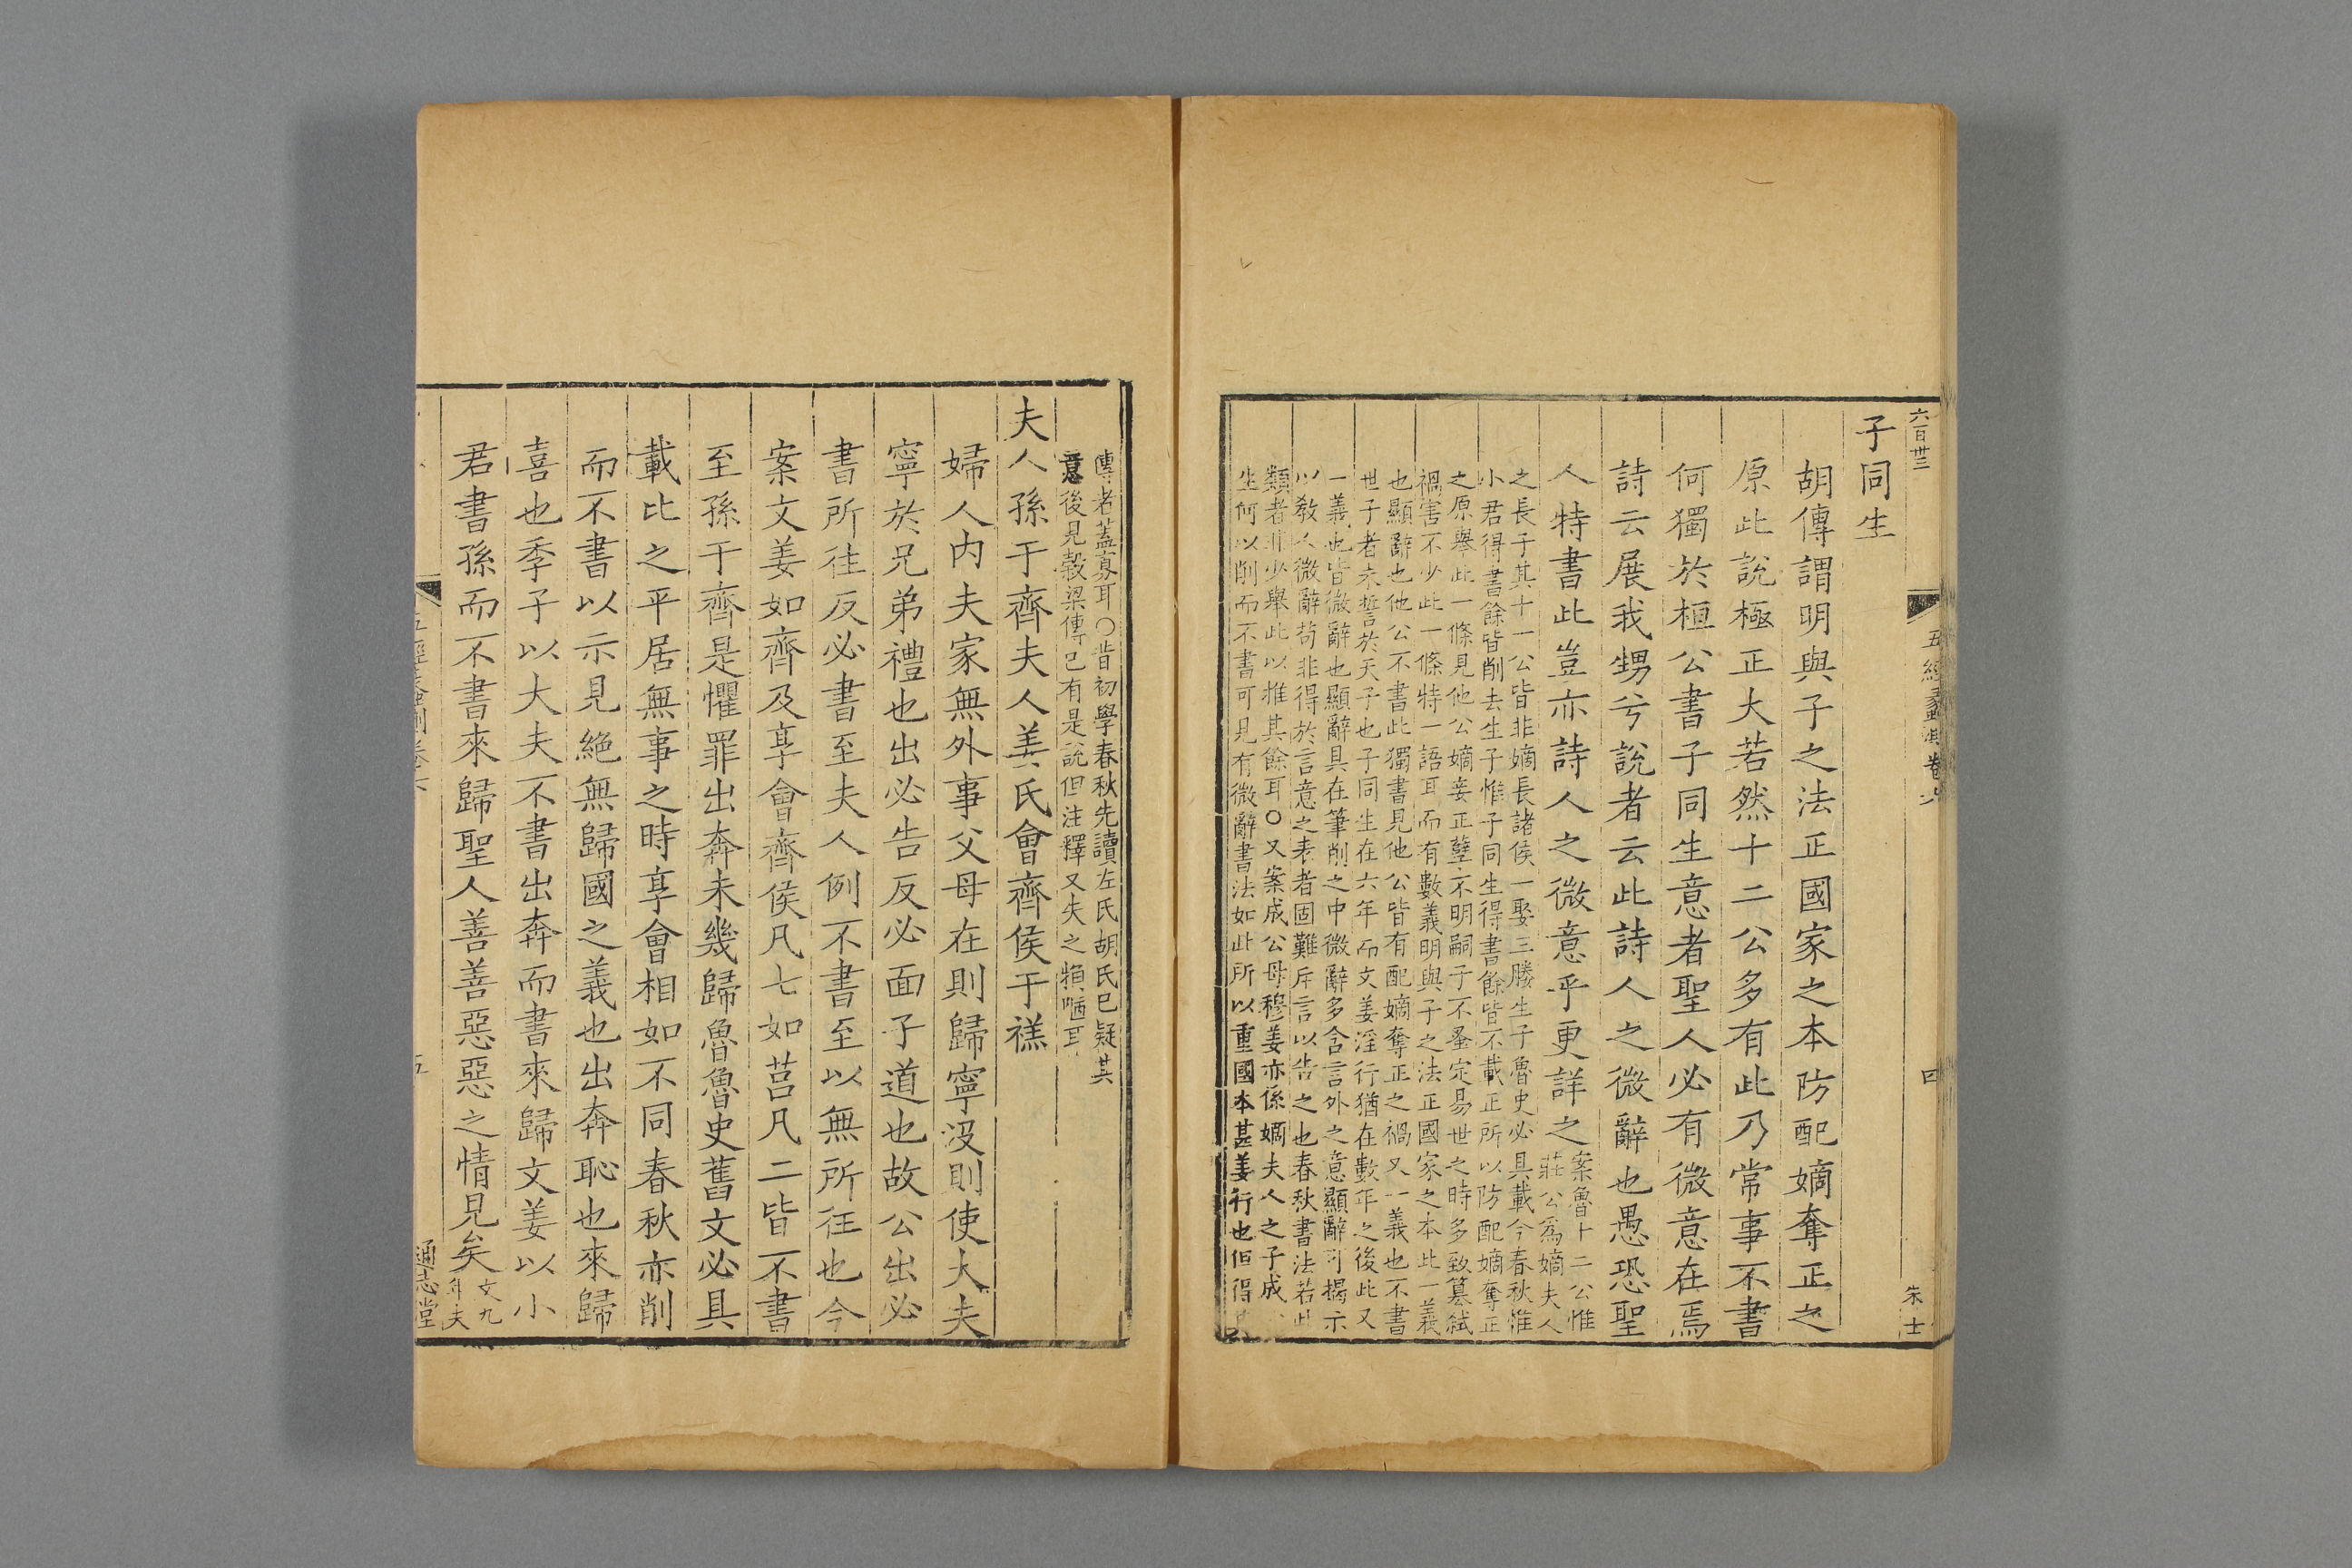 六百卅三
五經蠡測卷六
四
朱士
子同生
胡傳謂明與子之法正國家之本防配嫡奪正之
原此說極正大若然十二公多有此乃常事不書
何獨於桓公書子同生意者聖人必有微意在焉
詩云展我甥兮說者云此詩人之微辭也愚恐聖
人特書此豈亦詩人之微意乎更詳之
案魯十二公惟
莊公爲嫡夫人
之長子其十一公皆非嫡長諸侯一娶三媵生子魯史必具載今春秋惟
小君得書餘皆削去生子惟子同生得書餘皆不載正所以防配嫡奪正
之原舉此一條見他公嫡妾正孽不明嗣子不蚤定易世之時多致簒弑
禍害不少此一條特一語耳而有數義明與子之法正國家之本此一義
也顯辭也他公不書此獨書見他公皆有配嫡奪正之禍又一義也不書
世子者未誓於天子也子同生在六年而文姜淫行猶在數年之後此又
一義也皆微辭也顯辭具在筆削之中微辭多含言外之意顯辭可揭示
以敎人微辭苟非得於言意之表者固難斥言以告之也春秋書法若此
類者非少舉此以推其餘耳○又案成公母穆姜亦係嫡夫人之子成
生何以削而不書可見有微辭書法如此所以重國本甚姜行也但得
傳者蓋寡耳○昔初學春秋先讀左氏胡氏已疑其
意後見穀梁傳已有是說但注釋又失之猥陋耳
夫人孫于齊夫人姜氏會齊侯于禚
婦人內夫家無外事父母在則歸寧沒則使大夫
寧於兄弟禮也出必告反必面子道也故公出必
書所往反必書至夫人例不書至以無所往也今
案文姜如齊及享會齊侯凡七如莒凡二皆不書
至孫于齊是懼罪出奔未幾歸魯魯史舊文必具
載比之平居無事之時享會相如不同春秋亦削
而不書以示見絶無歸國之義也出奔恥也來歸
喜也季子以大夫不書出奔而書來歸文姜以小
君書孫而不書來歸聖人善善惡惡之情見矣
文九
年夫
五經蠡測卷六
五
通志堂